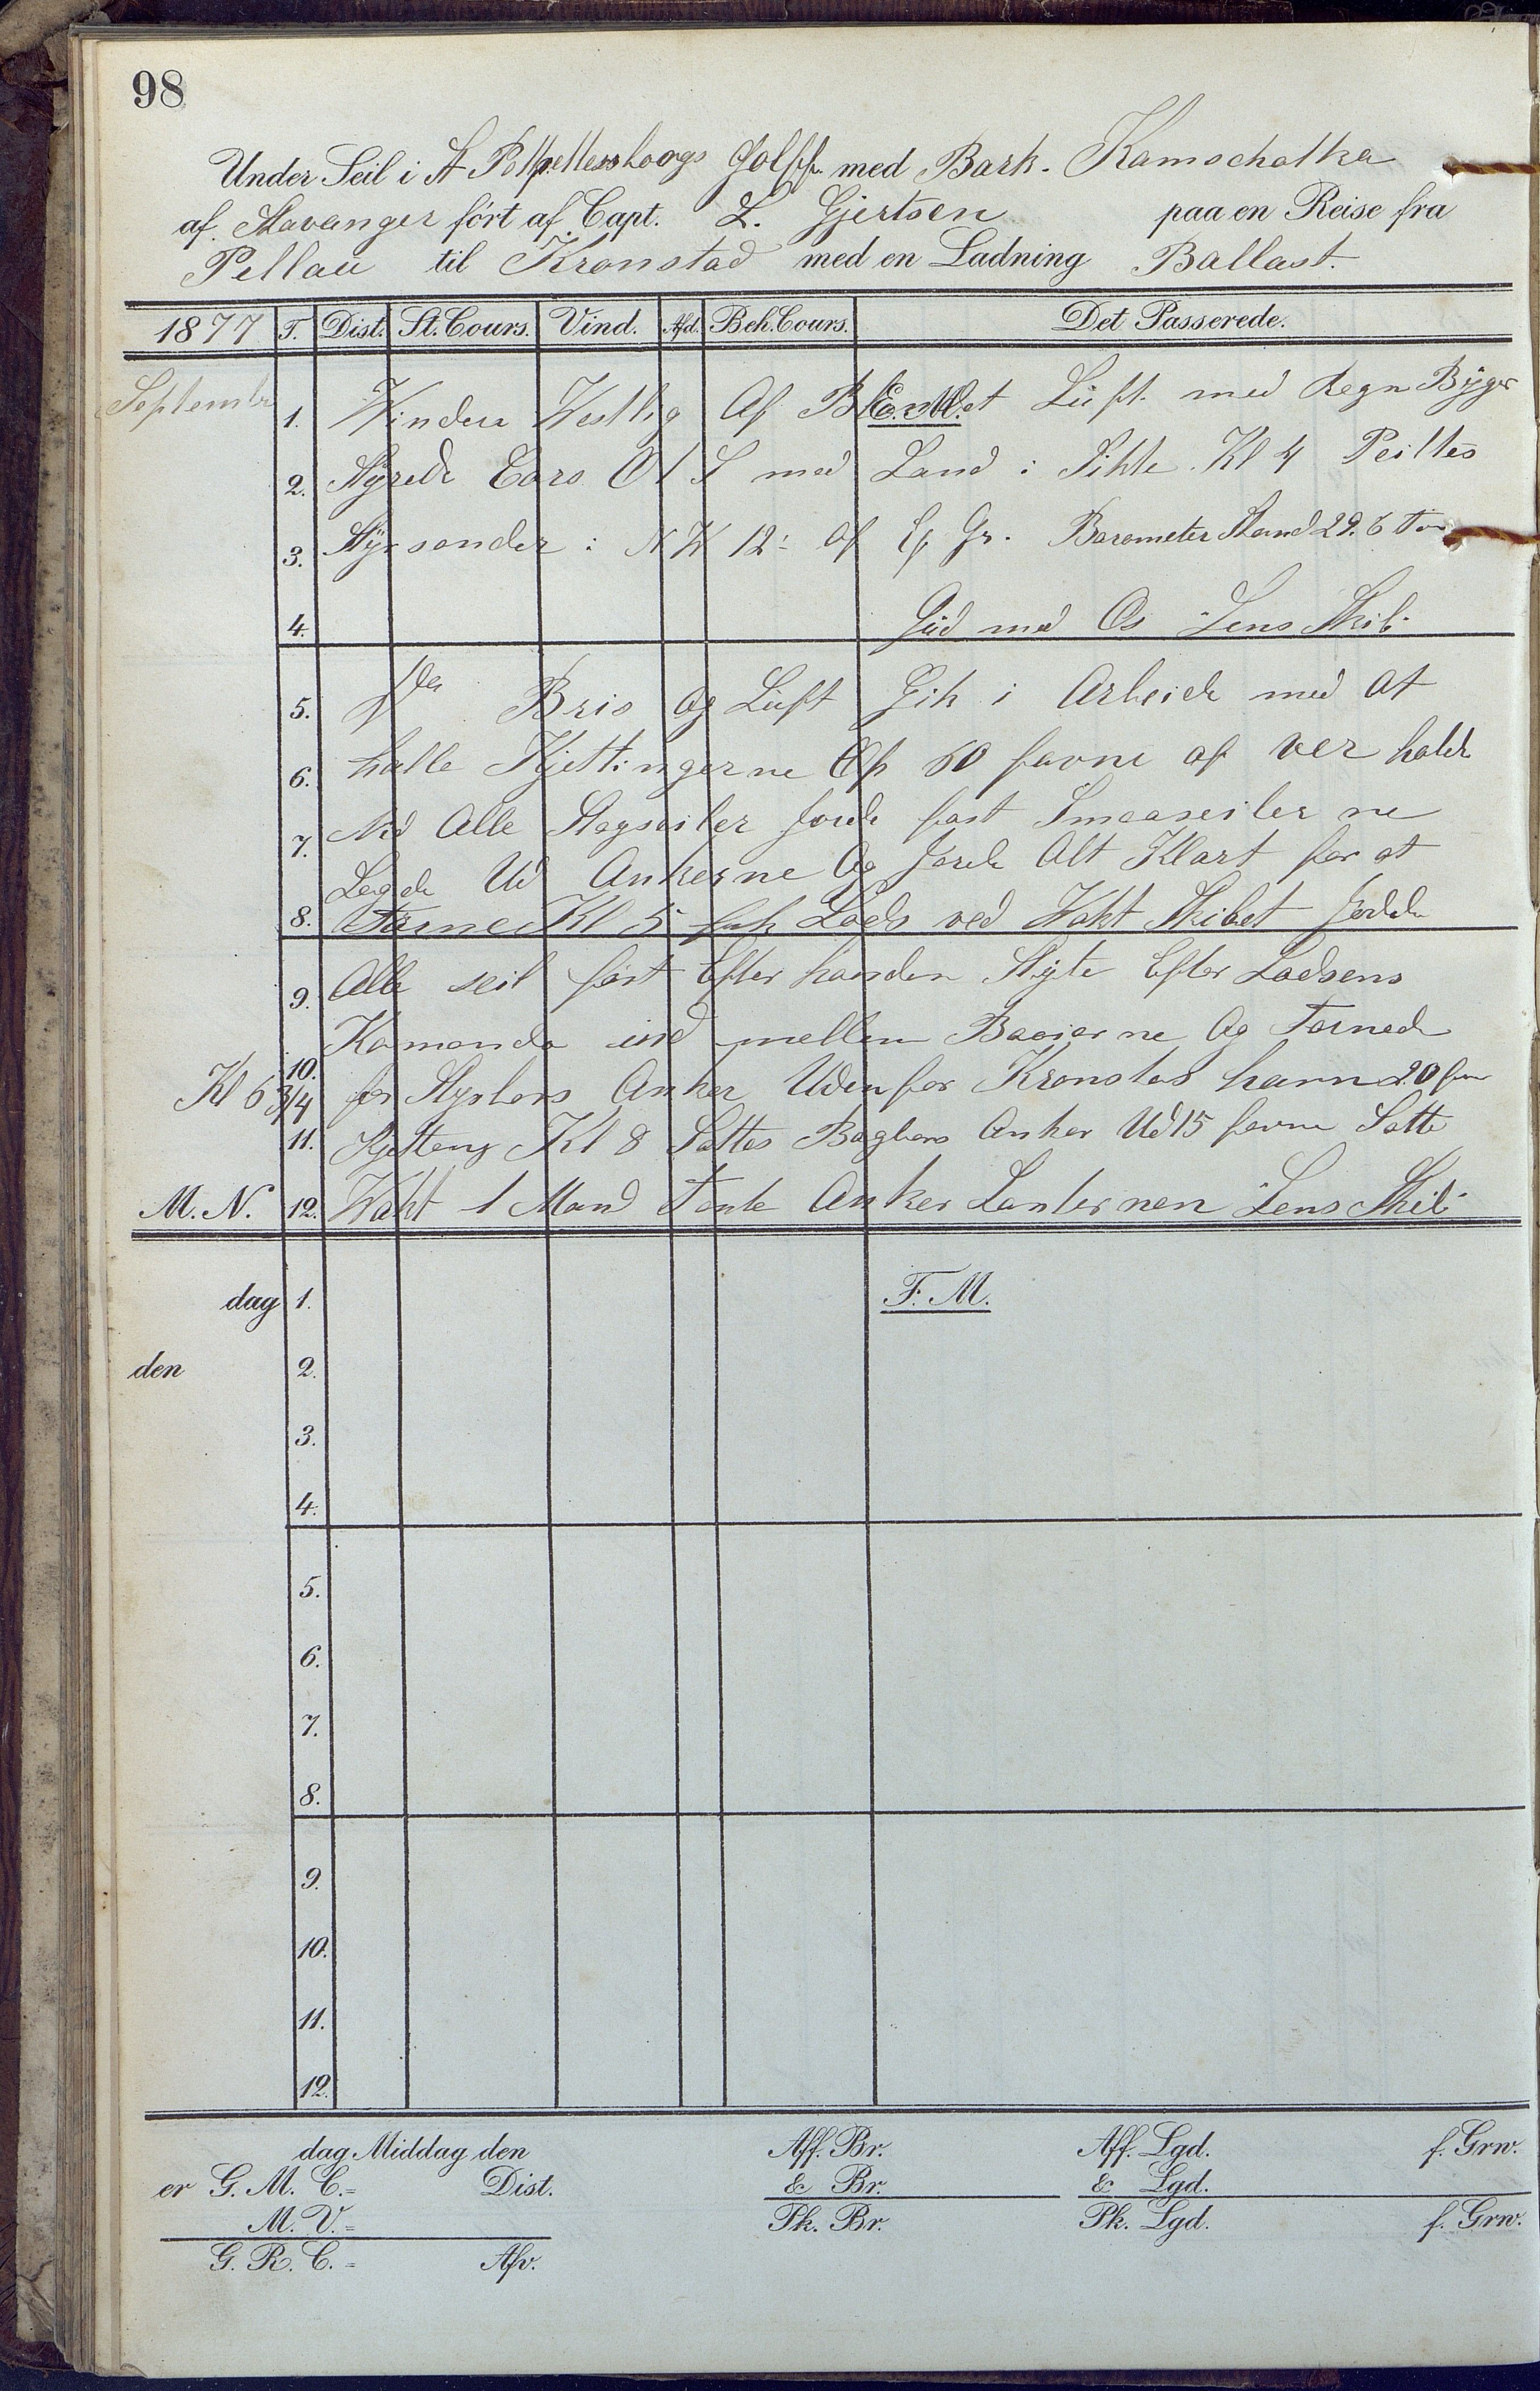 98
Under Seil i St Pettersborgs Golff. med Bark. Kamschatka
af. Stavanger ført af. Capt. L. Gjertsen paa en Reise fra
Pellau til Kronstad med en Ladning Ballast.
1877 T. Dist. St. Cours. Vind. Afd. Beh. Cours. Det Passerede.
E. M.
September 1. Vinden Vestlig Af Blandet Lüft med Regn Byger
2. Styrede Cors O t S med Land i Sikte. Kl 4 Peiltes
3. Styrsonder i N W 12' Af Gr. Barometer Stand 29.6 Tor
4. Güd med Os Lens Skib
5. Do Bris og Lüft Gik i Arbeide med At
6. halle Kjettingerne Op 60 favne af ver halte
7. Ned Alle Stagseiler Jorde fast Smaaseilerne
Lagde Ud Ankerne Og Jorde Alt Klart for at
8. Törne Kl 5 fik Lods ved Vakt Skibet Jorde
9. Alle seil fast Efter handen Styte Efter Lodsens
Komando ind mellem Baaierne Og Tornede
10.
Kl 6 3/4 for Styrbors Anker Uden for Kronstas havn 20 fav
11. Kjetteng Kl 8 Sattes Bagbors Anker Ud 15 favne Satte
M. N. 12. Vakt 1 Mand Tente Anker Lanternen Lens Skib
dag 1. F. M.
den 2.
3.
4.
5.
6.
7.
8.
9.
10.
11.
12.
dag Middag den Aff. Br. Aff. Lgd. f. Grw.
er G. M. C.= Dist. & Br. & Lgd.
M. V.= Pk. Br. Pk. Lgd. f. Grw.
G. R. C.= Afv.